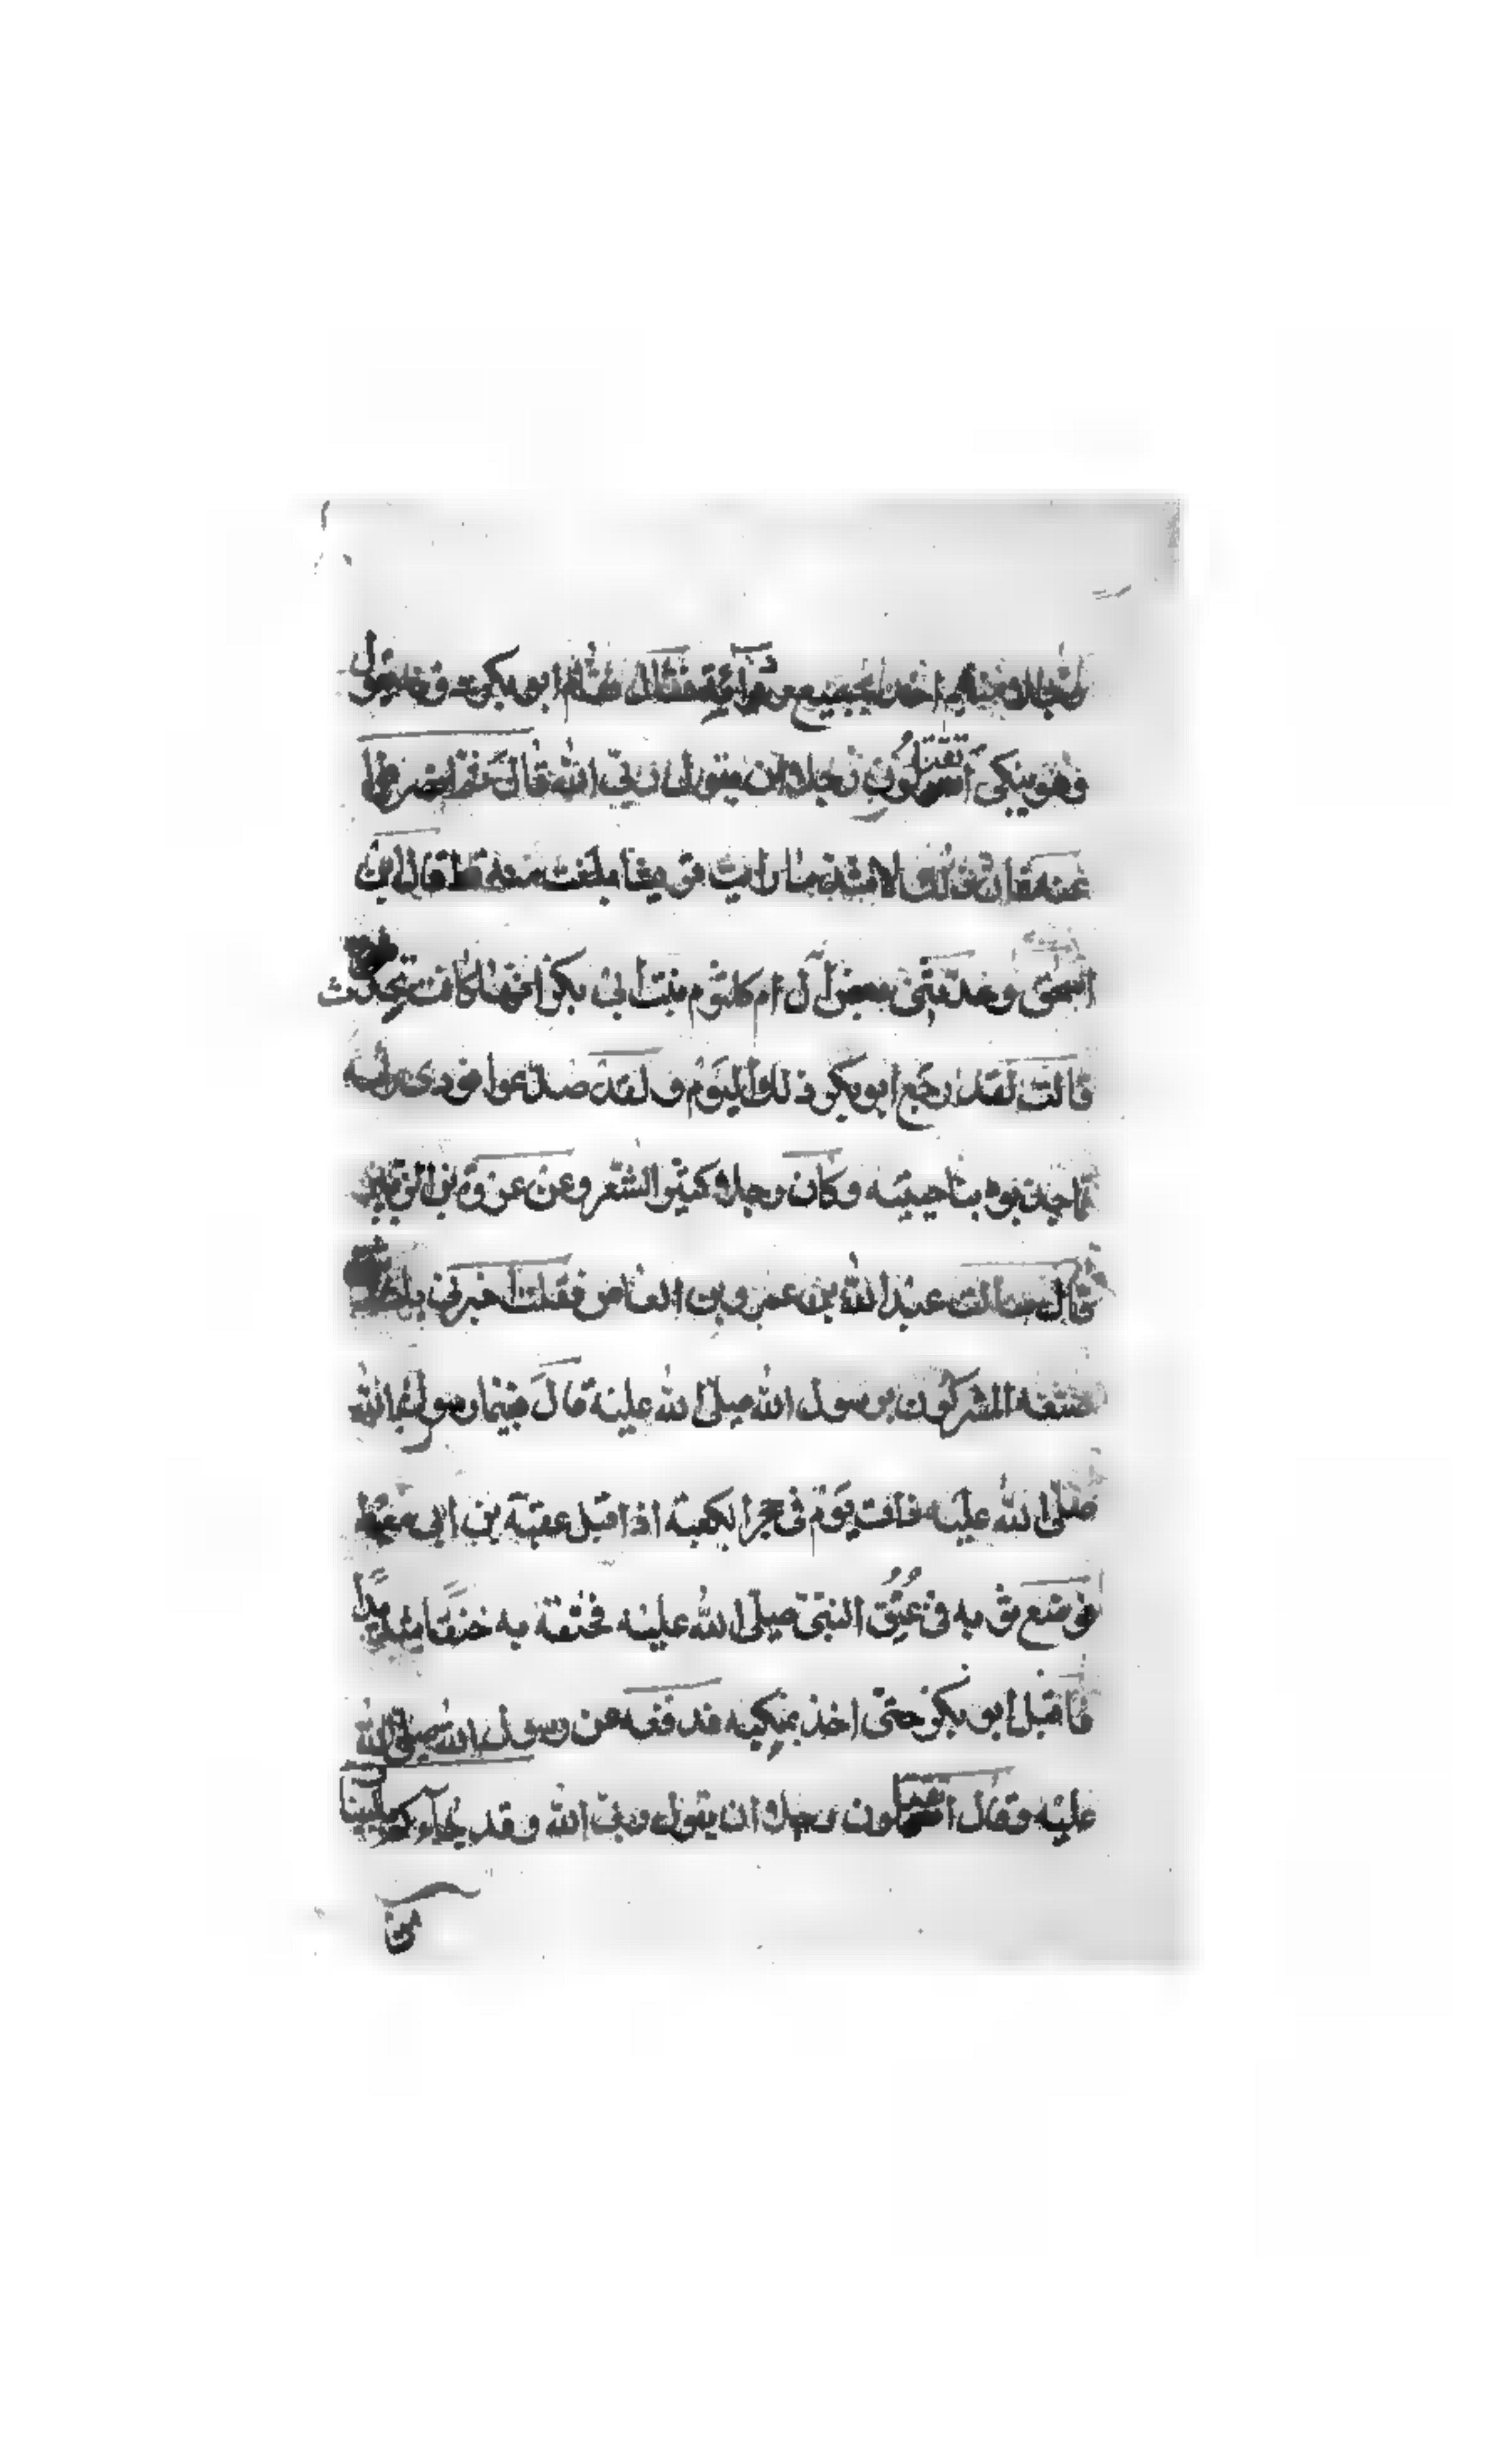 رجلا منهم اخذ بجميع ردآئه فقال فقام ابو بكر دونه يقول
وهو يبكى اتقتلون رجلا ان يقول ربى الله قال ثم انصرفوا
عنه فان ذلك لاشد ما رايت قريشا بلغت منه قط قال بن
اسحق وحدثنى بعض آل ام كلثوم بنت ابى بكر انها كانت تحدث
قالت لقد رجع ابو بكر ذلك اليوم ولقد صدعوا فودى راسه
مما جذبوه بلحيته وكان رجلا كثير الشعر وعن عروة بن الزبير
قال سالت عبد الله بن عمرو بن العاص فقلت اخبرنى باشد
صنعه المشركون برسول الله صلى الله عليه قال بينما رسول الله
صلى الله عليه ذات يوم فى حجر الكعبة اذ اقبل عقبة بن ابى معيط
فوضع ثوبه فى عنق النبى صلى الله عليه فخنقه به خنقا شديدا
فاقبل ابو بكر حتى اخذ بمنكبيه فدفعه عن رسول الله صلى الله
عليه وقال اتقتلون رجلا ان يقول ربى الله وقد جآءكم بالبينات
من